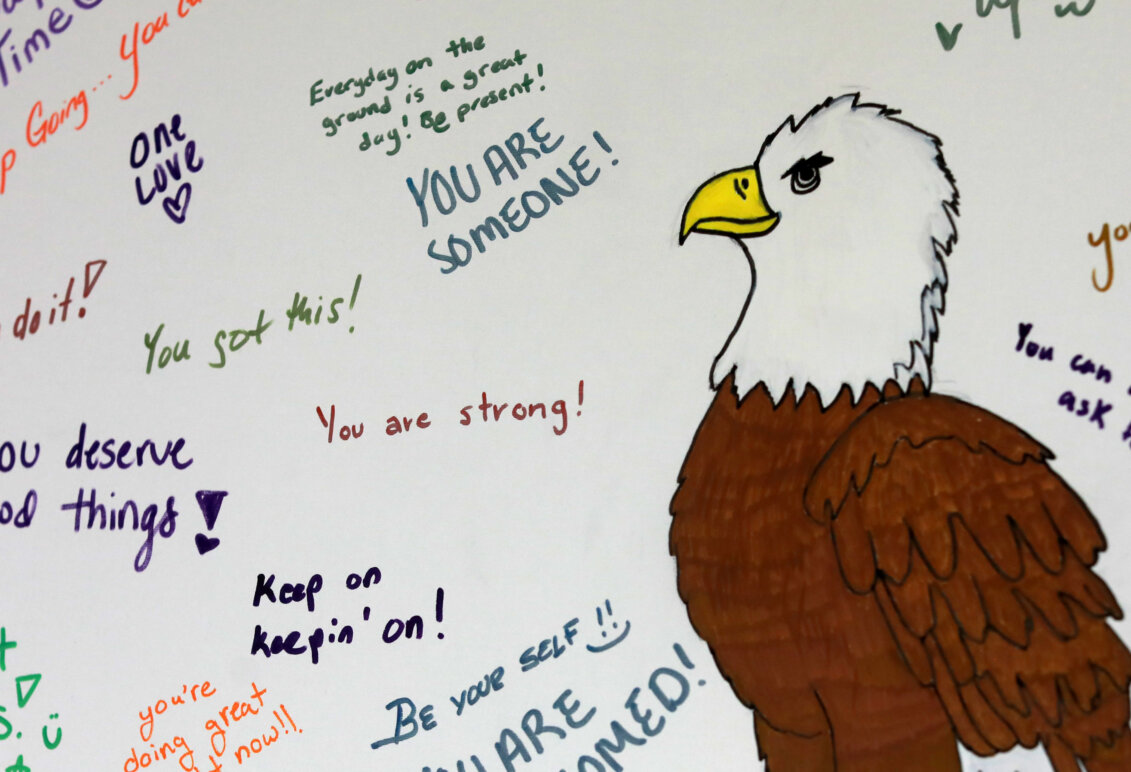 Time
Going... You
Everyday on the
ground is a great
day! Be present!
ONE
LOVE
YOU ARE
SOMEONE!
do it!
You got this!
You are strong!
You can
ask
deserve
things!
Keep on
keepin' on!
BE YOUR SELF!!
you're
doing great
now!!
ARE